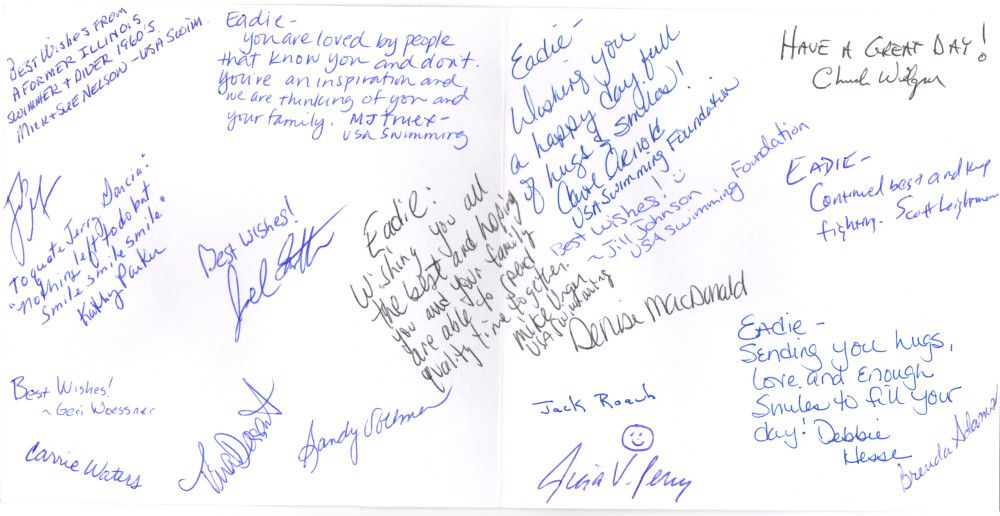 BEST WISHES FROM
A FORMER ILLINOIS
SWIMMER + DIVER 1960'S
MICK + SUE NELSON - USA SWIM
Eadie -
you are loved by people
that know you and don't.
You're an inspiration and
we are thinking of you and
your family. MJ Truex -
USA Swimming
Eadie -
Wishing you
a happy day full
of hugs & smiles!
USA Swimming Foundation
HAVE A GREAT DAY!
Chuck
To quote Jerry Garcia:
"Nothing left to do but
smile smile smile"
Kathy Parker
Best Wishes!
Joel
Eadie:
Wishing you all
the best and hoping
you and your family
are able to spend
quality time together.
Mike Unger
USA Swimming
Best Wishes! ☺
~ Jill Johnson
USA Swimming Foundation
EADIE -
Continued best and keep
fighting. Scott Leightman
Denise MacDonald
EADIE -
Sending you hugs,
love and Enough
Smiles to fill your
day! Debbie
Hesse
Best Wishes!
~ Geri Woessner
Carrie Waters
Sandy
Jack Roach
Brenda Adams